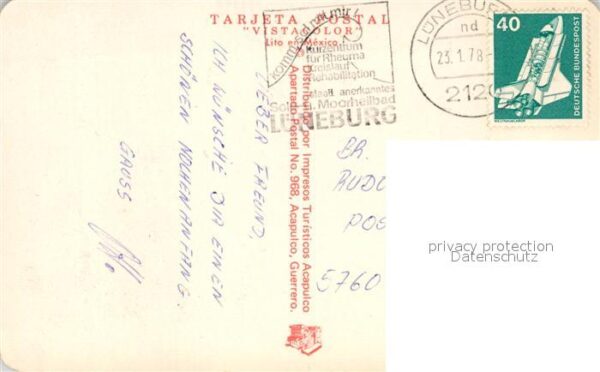 TARJETA POSTAL
"VISTACOLOR"
Lito en México
Kurzentrum
für Rheuma
Kreislauf
Rehabilitation
Staatl. anerkanntes
Sol- u. Moorheilbad
LÜNEBURG
LÜNEBURG
nd
23.1.78
2120
40
DEUTSCHE BUNDESPOST
WELTRAUMLABOR
Distribuido por Impresos Turísticos Acapulco
Apartado Postal No. 968, Acapulco, Guerrero.
LIEBER FREUND,
ICH WÜNSCHE DIR EINEN
SCHÖNEN WOCHENANFANG.
GRUSS
BR.
RUDO
POS
5760
privacy protection
Datenschutz